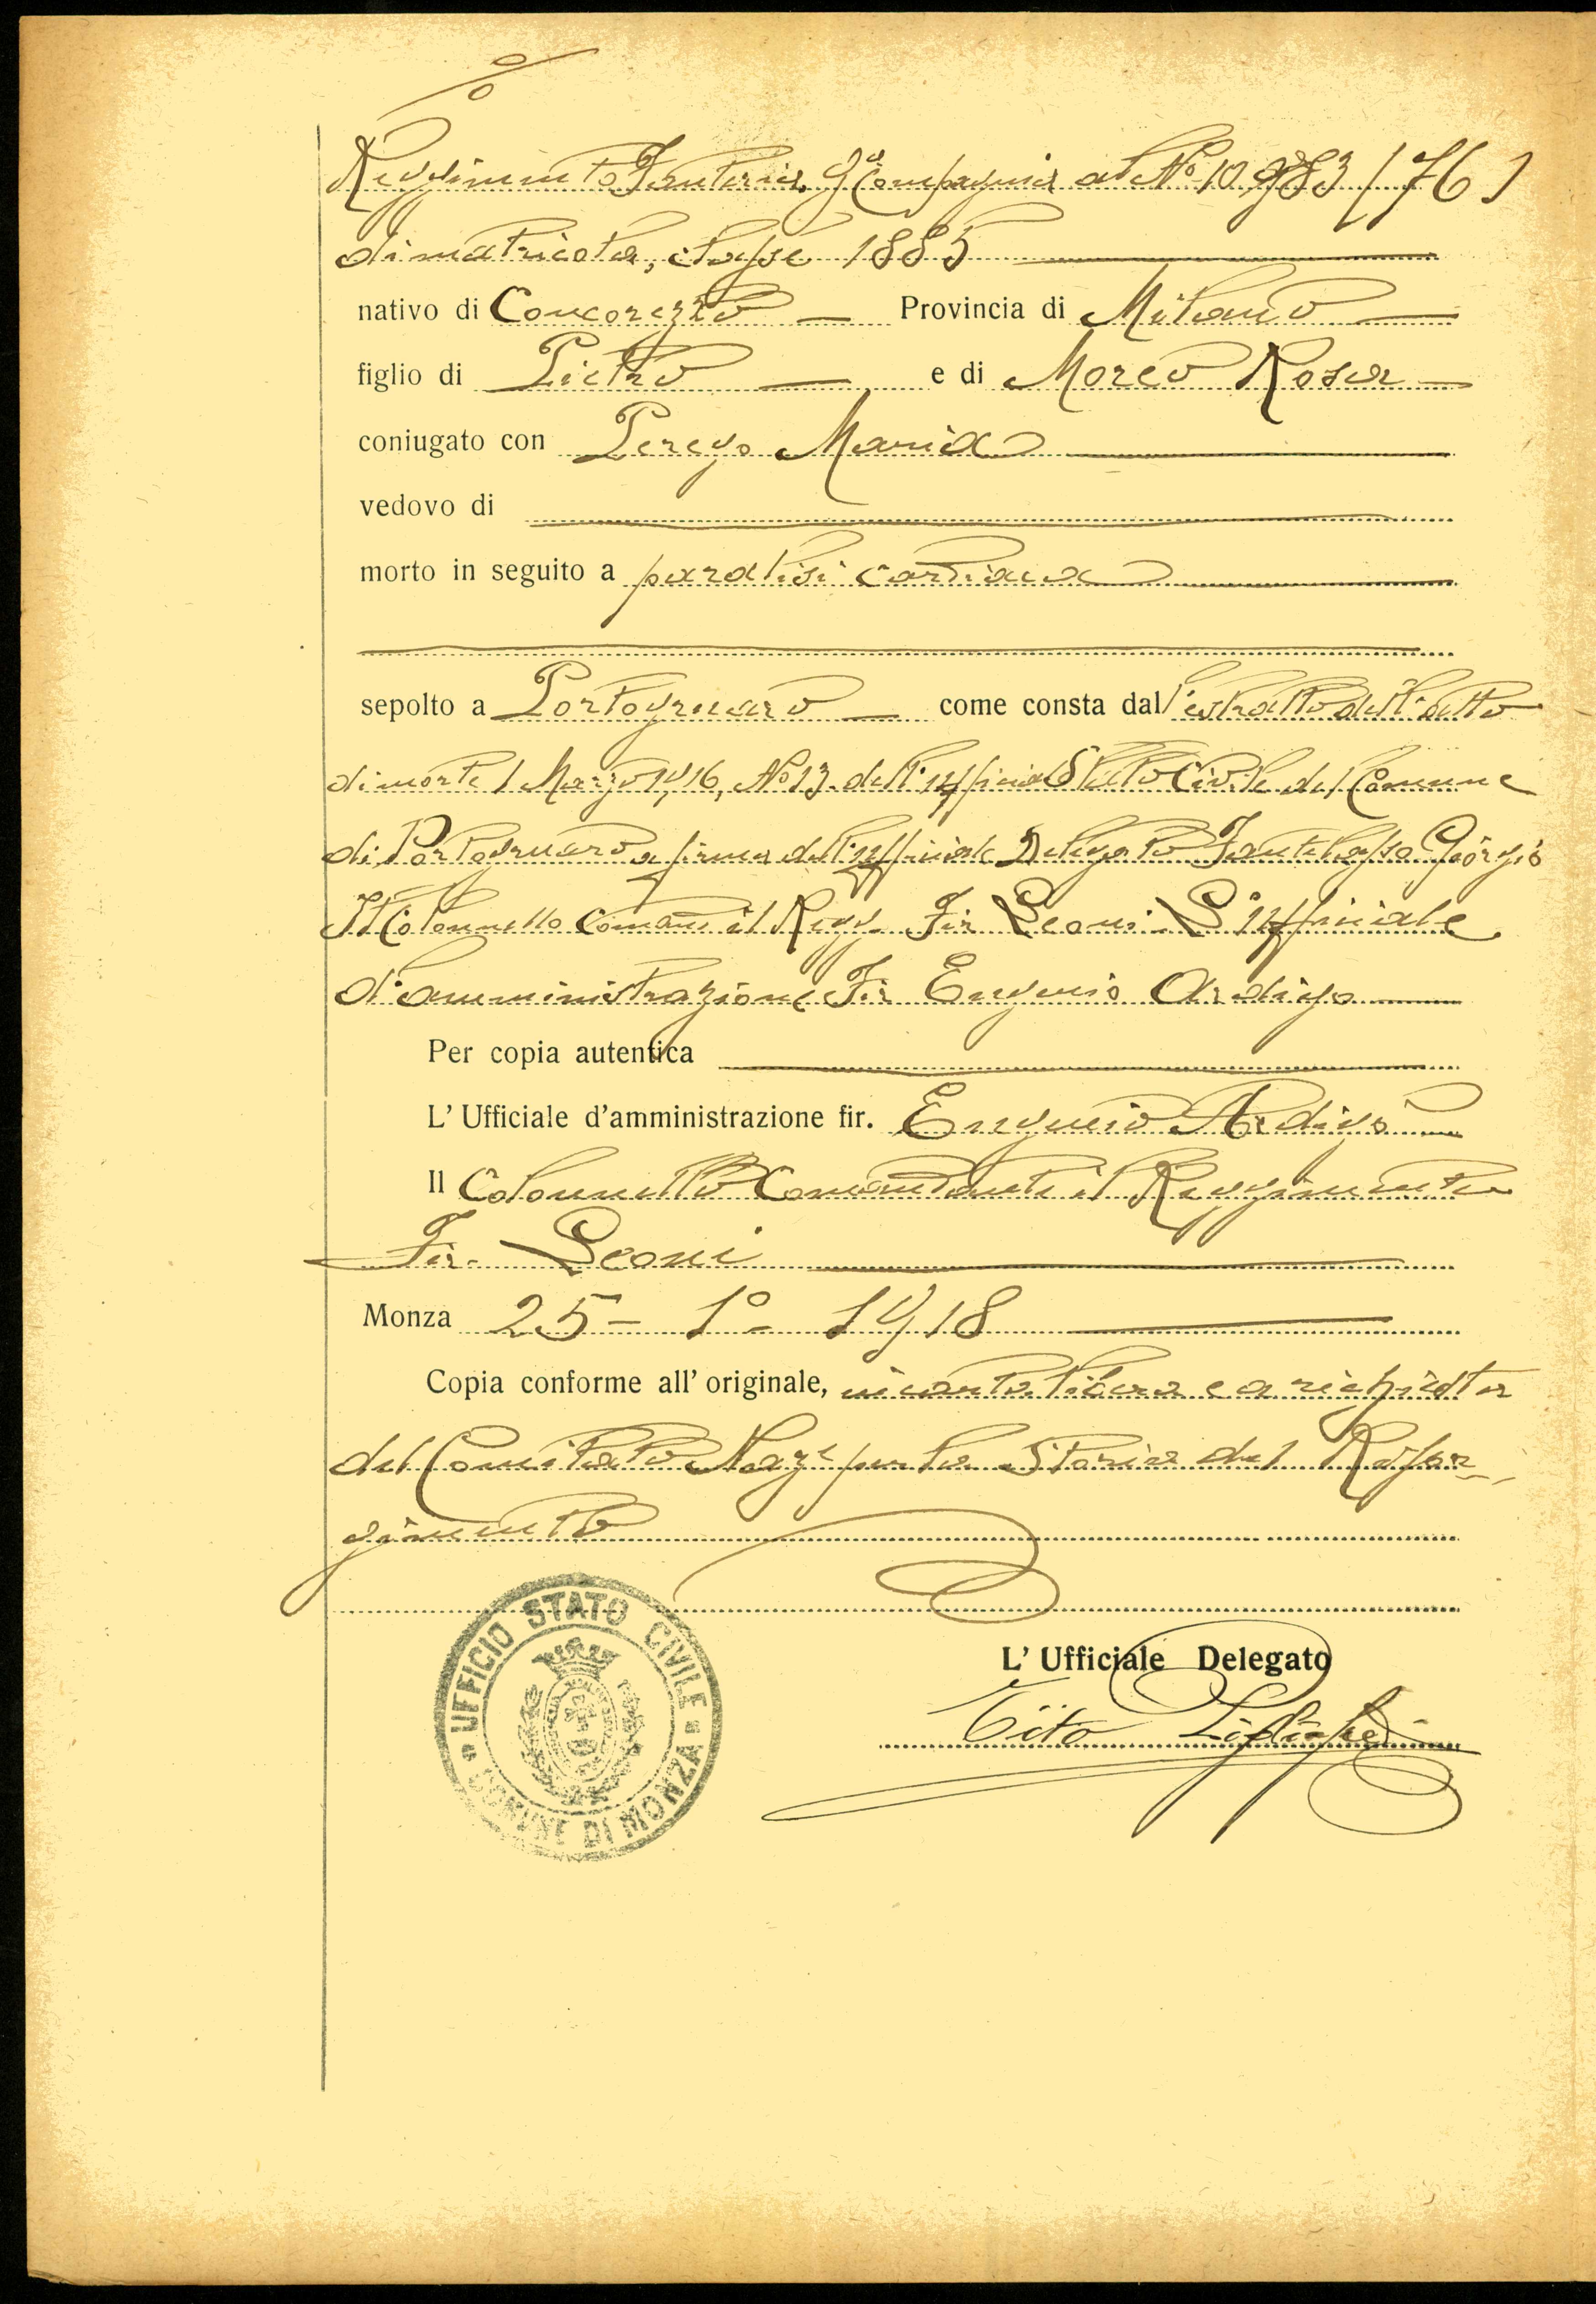 Reggimento Fanteria, 9ª Compagnia al No 10983 (76)
di matricola, classe 1885
nativo di Concorezzo Provincia di Milano
figlio di Pietro e di Moreo Rosa
coniugato con Perego Maria
vedovo di
morto in seguito a paralisi cardiaca
sepolto a Portogruaro come consta dall'estratto dell'atto
di morte 1 Marzo 1916, No 13 dell'Ufficio Stato Civile del Comune
di Portogruaro a firma dell'ufficiale Delegato Giorgio
Il Colonnello Comand il Regg. Fir Leoni L'ufficiale
d'amministrazione Fir Eugenio Ardigo
Per copia autentica
L' Ufficiale d'amministrazione fir. Eugenio Ardigò
Il Colonnello Comandante il Reggimento
Fir. Leoni
Monza 25 - 1º - 1918
Copia conforme all' originale, in carta libera e a richiesta
del Comitato Naze per la Storia del Risor-
gimento
UFFICIO STATO CIVILE
COMUNE DI MONZA
L' Ufficiale Delegato
Tito